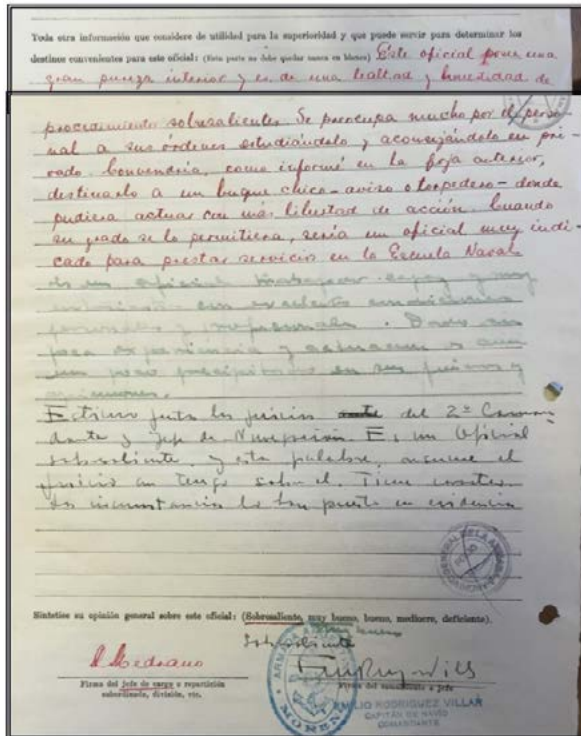 Toda otra información que considere de utilidad para la superioridad y que pueda servir para determinar los
destinos convenientes para este oficial: (Esta parte no debe quedar nunca en blanco) Este oficial posee una
gran pureza interior y es de una lealtad y honestidad de
procedimiento sobresalientes. Se preocupa mucho por el perso-
nal a sus órdenes estudiándolo y aconsejándolo en pri-
vado. Convendría, como informé en la foja anterior,
destinarlo a un buque chico - aviso o torpedero - donde
pudiera actuar con más libertad de acción. Cuando
su grado se lo permitiera, sería un oficial muy indi-
cado para prestar servicios en la Escuela Naval.
Es un oficial trabajador capaz y muy
con excelentes condiciones
personales y profesionales. Dada su
poca experiencia y actuación es aún
un poco precipitado en sus juicios y
Estimo justo los juicios del 2º Coman
dante y Jefe de Navegación. Es un Oficial
sobresaliente y esta palabra resume el
juicio que tengo sobre el. Tiene carácter
las circunstancias lo han puesto en evidencia
ARCHIVO GENERAL DE LA ARMADA
Sintetice su opinión general sobre este oficial: (Sobresaliente, muy bueno, bueno, mediocre, deficiente).
Sobresaliente
A Medrano
Firma del jefe de cargo o repartición
subordinada, división, etc.
Firma del comandante o jefe
ARMADA
MORENO
EMILIO RODRIGUEZ VILLAR
CAPITÁN DE NAVÍO
COMANDANTE